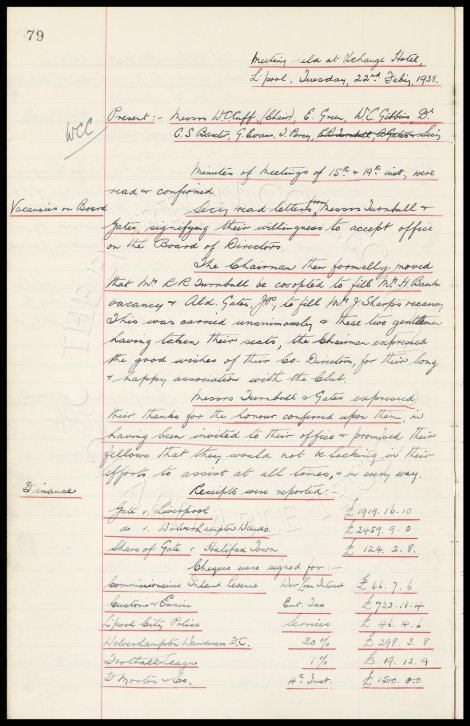 79
Meeting held at Xchange Hotel,
L'pool, Tuesday, 22nd Feb'y, 1938.
Present :- Messrs W C Cuff, (Chair), E. Green, W. C. Gibbins, Dr.
C. S. Baxter, G. Evans, T. Percy, R.R. Turnbull, A. Gates & Secy
WCC
Minutes of Meetings of 15th & 19th inst, were
read & confirmed
Vacancies on Board
Sec'y read letters from Messrs Turnbull &
Gates, signifying their willingness to accept office
on the Board of Directors.
The Chairman then formally moved
that Mr R R Turnbull be coopted to fill Mr H Banks
vacancy & Ald. Gates, to fill Mr J. Sharp's vacancy
This was carried unanimously & these two gentlemen
having taken their seats, the Chairman expressed
the good wishes of their Co-Directors, for their long
& happy association with the Club.
Messrs Turnbull & Gates expressed
their thanks for the honour conferred upon them, in
having been invited to their office & promised their
fellows that they would not be lacking in their
efforts to assist at all times, & in every way.
Finance
Receipts were reported :-
Gate v. Liverpool £1919. 16. 10
do v. Wolverhampton Wands. £2459. 9. 0
Share of Gate v Halifax Town £ 124. 2. 8.
Cheques were signed for :-
Commissioners Inland Revenue War Loan Interest £ 66. 7. 6
Customs & Excise Ent. Tax £ 723. 18. 4
L'pool City Police Services £ 46. 4. 6
Wolverhampton Wanderers F.C. 20% £ 298. 3. 8
Football League 1% £ 19. 13. 9
F Morton & Co. 4th Inst. £ 1500. 0. 0